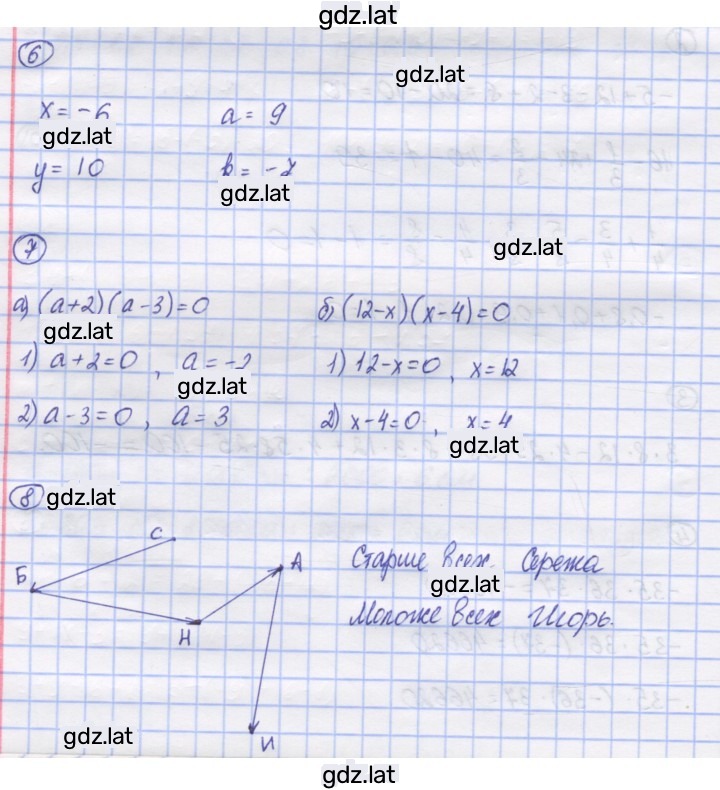 gdz.lat
6
gdz.lat
x = -6 a = 9
gdz.lat
y = 10 b = -7
gdz.lat
7
gdz.lat
а) (a+2)(a-3)=0 б) (12-x)(x-4)=0
gdz.lat
1) a+2=0, a=-2 1) 12-x=0, x=12
gdz.lat
2) a-3=0, a=3 2) x-4=0, x=4
gdz.lat
8 gdz.lat
С
Б А Старше всех Сережа
gdz.lat
Н Моложе всех Игорь.
gdz.lat
И
gdz.lat